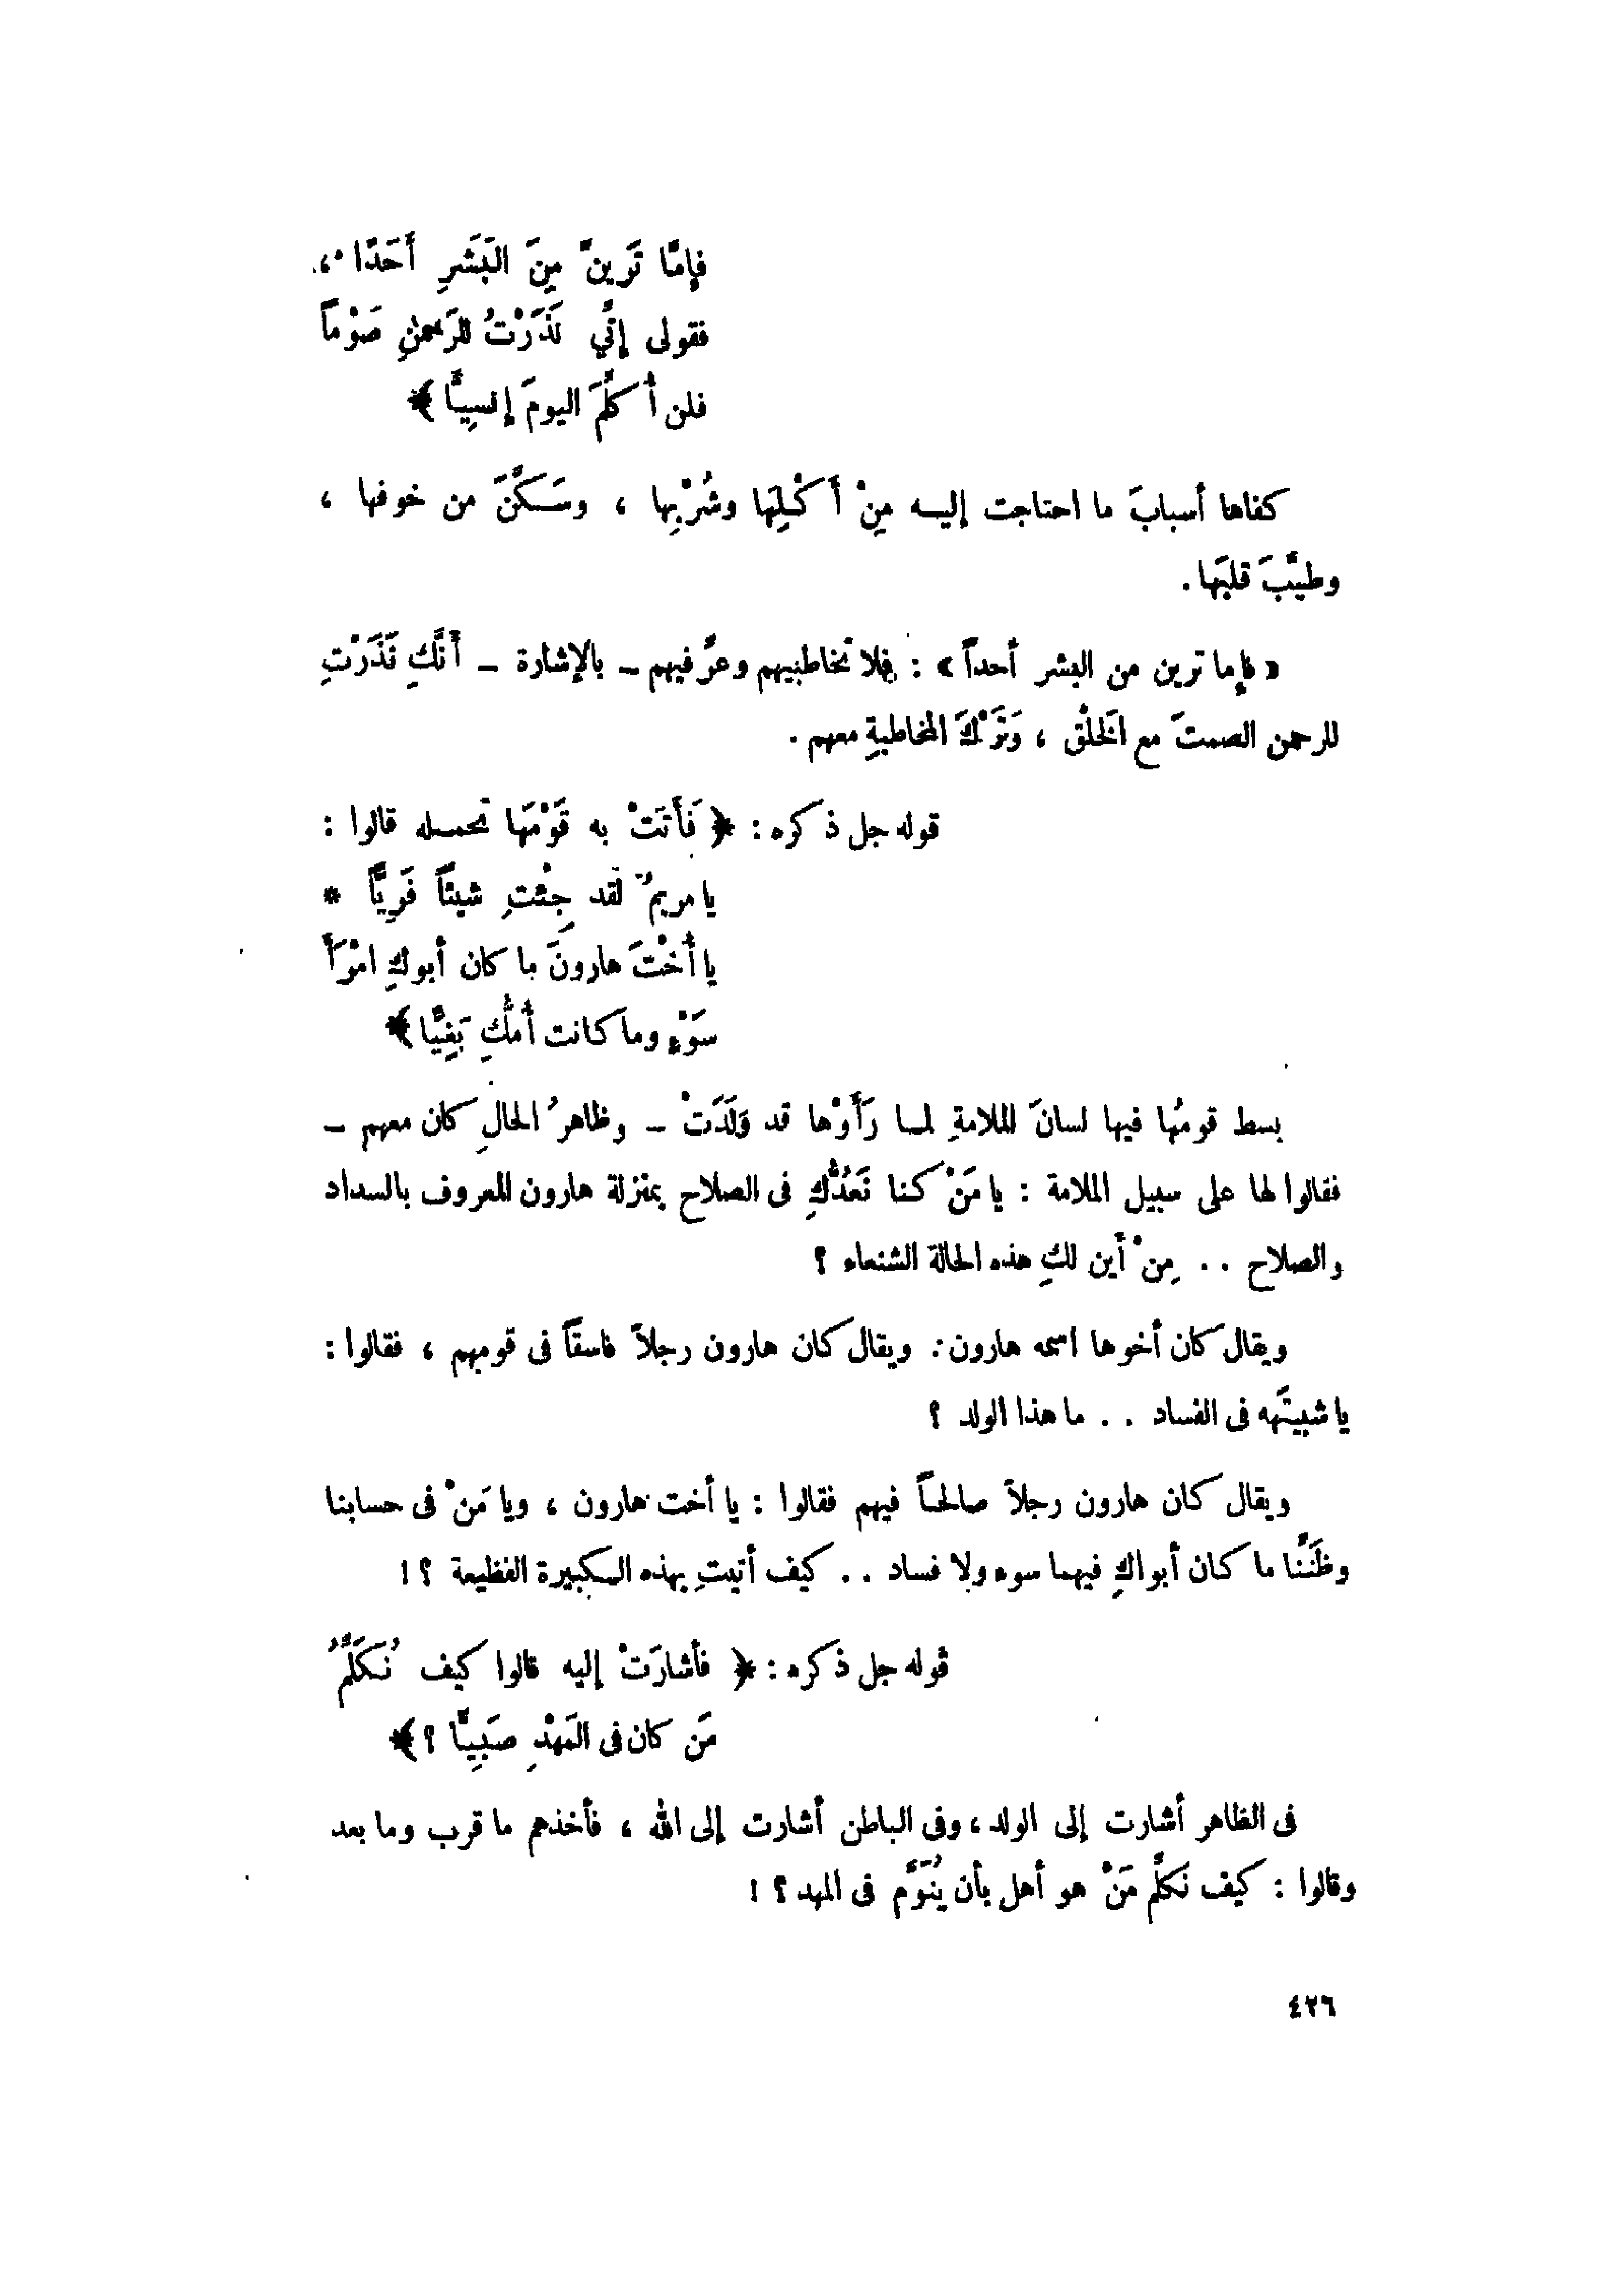 فإمَّا تَرَينَّ مِنَ البَشَرِ أَحَدًا ،
فقولى إنِّي نَذَرْتُ للرَحمنِ صَوْماً
فلن أُكلِّمَ اليومَ إنسِيًّا ﴾
كفاها أسبابَ ما احتاجت إليـه مِنْ أَكْـلِهَا وشُرْبِها ، وسَـكَّنَ من خوفها ،
وطيَّبَ قلبَها .
« فإما ترين من البشر أحداً » : فلا تخاطبيهم وعرِّفيهم – بالإشارة – أَنَّكِ نَذَرْتِ
للرحمن الصمتَ مع الخَلْق ، وَتَرْكَ المخاطبةِ معهم .
قوله جل ذكره : ﴿ فَأَتَتْ به قَوْمَهَا تحمـله قالوا :
يا مريمُ لقد جِئْتِ شيئاً فَرِيًّا *
يا أُخْتَ هارونَ ما كان أبوكِ امْرَأَ
سَوْءٍ وما كانت أُمُّكِ بَغِيًّا ﴾
بسط قومُها فيها لسانَ الملامةِ لمـا رَأَوْها قد وَلَدَتْ – وظاهرُ الحالِ كان معهم –
فقالوا لها على سبيل الملامة : يا مَنْ كنا نَعُدُّكِ فى الصلاح بمنزلة هارون المعروف بالسداد
والصلاح . . مِنْ أين لكِ هذه الحالة الشنعاء ؟
ويقال كان أخوها اسمه هارون . ويقال كان هارون رجلاً فاسقاً فى قومهم ، فقالوا :
يا شبيتَهه فى الفساد . . ما هذا الولد ؟
ويقال كان هارون رجلاً صالحـاً فيهم فقالوا : يا أخت هارون ، ويا مَنْ فى حسابنا
وظَنِّنا ما كان أبواكِ فيهما سوء ولا فساد . . كيف أتيتِ بهذه الـكبيرة الفظيعة ؟ !
قوله جل ذكره : ﴿ فأشارَتْ إليه قالوا كيف نُـكَلِّمُ
مَن كان فى المَهْدِ صَبِيًّا ؟ ﴾
فى الظاهر أشارت إلى الولد ، وفى الباطن أشارت إلى الله ، فأخذهم ما قرب وما بعد
وقالوا : كيف نكلِّم مَنْ هو أهل بأن يُنَوَّم فى المهد ؟ !
٤٢٦